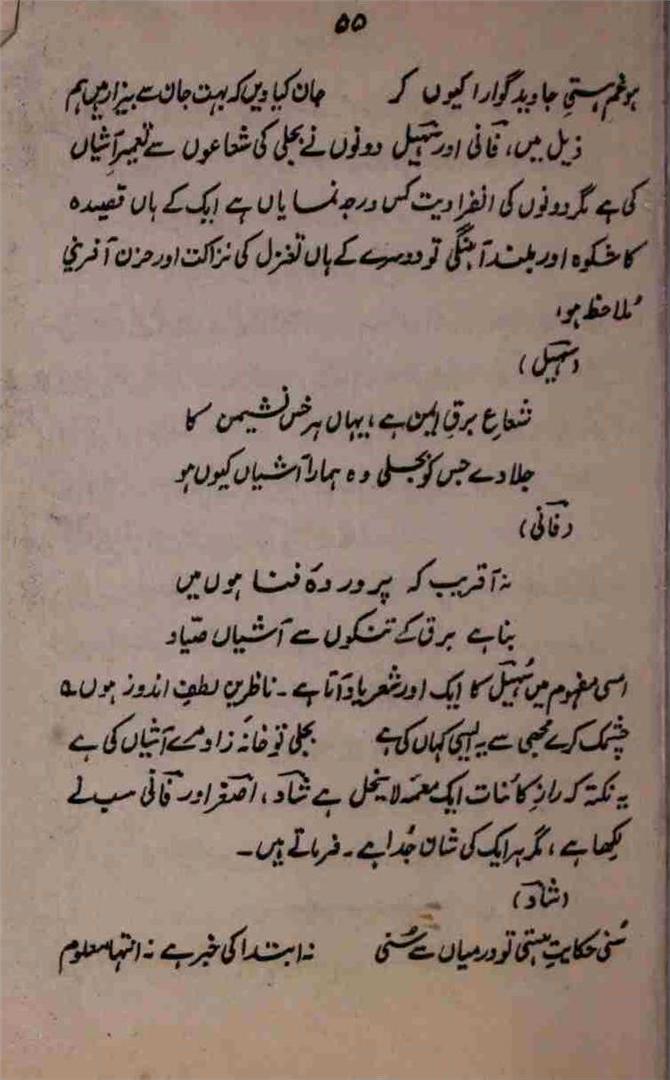 ۵۵
ہو غم ہستیِ جاوید گوارا کیوں کر جان کیا دیں کہ بہت جان سے بیزار ہیں ہم
ذیل میں، فانی اور سہیل دونوں نے بجلی کی شعاعوں سے تعمیرِ آشیاں
کی ہے مگر دونوں کی انفرادیت کس درجہ نمایاں ہے ایک کے ہاں قصیدہ
کا شکوہ اور بلند آہنگی تو دوسرے کے ہاں تغزل کی نزاکت اور حزن آفرینی
مُلاحظہ ہو،
(سہیل)
شعاعِ برقِ ایمن ہے، یہاں ہر خس نشیمن کا
جلا دے جس کو بجلی وہ ہمارا آشیاں کیوں ہو
(فانی)
نہ آ قریب کہ پروردۂ فنا ہوں میں
بنا ہے برق کے تنکوں سے آشیاں صیّاد
اسی مفہوم میں سُہیل کا ایک اور شعر یاد آتا ہے۔ ناظرین لطف اندوز ہوں ؎
چشمک کرے مجھی سے یہ ایسی کہاں کی ہے بجلی تو خانہ زاد مرے آشیاں کی ہے
یہ نکتہ کہ رازِ کائنات ایک معمہ لاینحل ہے شاد، اصغر اور فانی سب نے
لکھا ہے، مگر ہر ایک کی شان جُدا ہے۔ فرماتے ہیں۔
(شاد)
سُنی حکایتِ ہستی تو درمیاں سے سُنی نہ ابتدا کی خبر ہے نہ انتہا معلوم